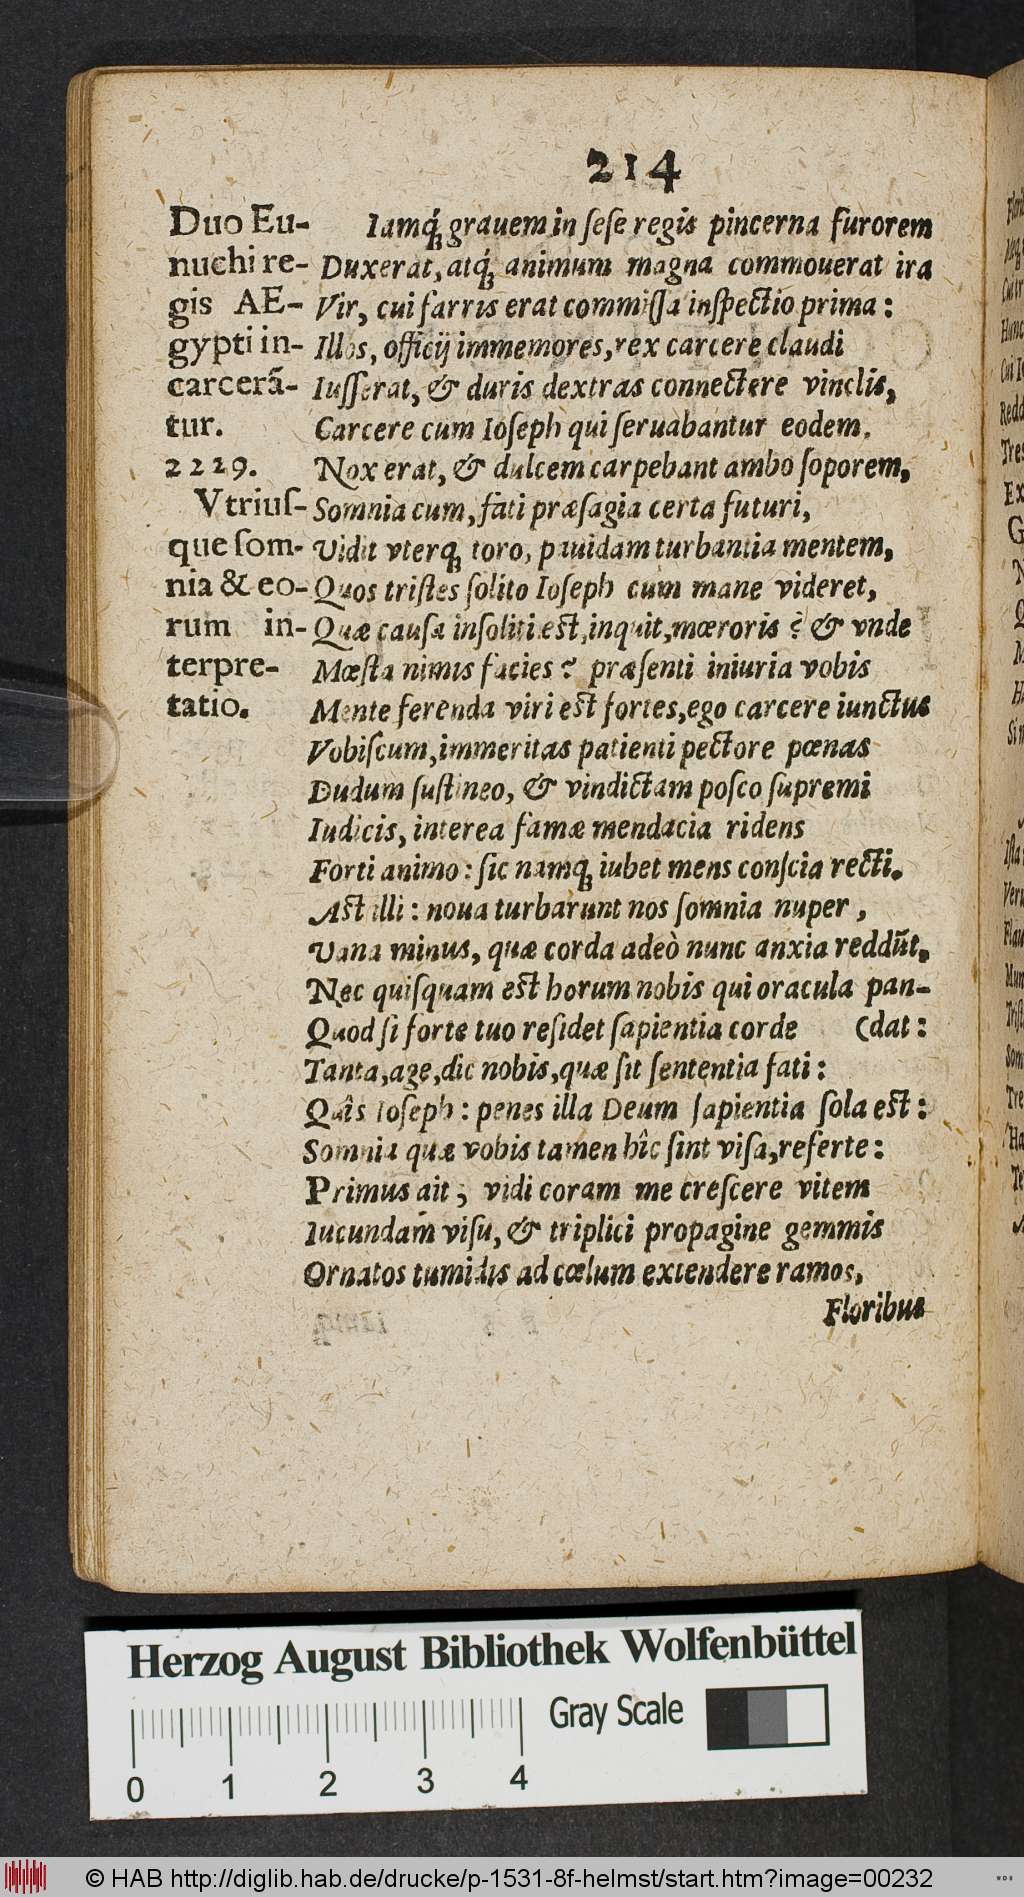 214
Duo Eu-
nuchi re-
gis AE-
gypti in-
carcerā-
tur.
2229.
Vtriuſ-
que ſom-
nia & eo-
rum in-
terpre-
tatio.
Iamq́; grauem in ſeſe regis pincerna furorem
Duxerat, atq́; animum magna commouerat ira
Vir, cui farris erat commiſſa inſpectio prima:
Illos, officij immemores, rex carcere claudi
Iuſſerat, & duris dextras connectere vinclis,
Carcere cum Ioſeph qui ſeruabantur eodem.
Nox erat, & dulcem carpebant ambo ſoporem,
Somnia cum, fati præſagia certa futuri,
Vidit vterq; toro, pauidam turbantia mentem,
Quos triſtes ſolito Ioſeph cum mane videret,
Quæ cauſa inſoliti eſt, inquit, mœroris? & vnde
Mœſta nimis facies? præſenti iniuria vobis
Mente ferenda viri eſt fortes, ego carcere iunctus
Vobiſcum, immeritas patienti pectore pœnas
Dudum ſuſtineo, & vindictam poſco ſupremi
Iudicis, interea famæ mendacia ridens
Forti animo: ſic namq; iubet mens conſcia recti.
Aſt illi: noua turbarunt nos ſomnia nuper,
Vana minus, quæ corda adeò nunc anxia reddūt.
Nec quiſquam eſt horum nobis qui oracula pan-
Quod ſi forte tuo reſidet ſapientia corde (dat:
Tanta, age, dic nobis, quæ ſit ſententia fati:
Quîs Ioſeph: penes illa Deum ſapientia ſola eſt:
Somnia quæ vobis tamen hîc ſint viſa, referte:
Primus ait, vidi coram me creſcere vitem
Iucundam viſu, & triplici propagine gemmis
Ornatos tumidis ad cœlum extendere ramos,
Floribus
Herzog August Bibliothek Wolfenbüttel
Gray Scale
0 1 2 3 4
© HAB http://diglib.hab.de/drucke/p-1531-8f-helmst/start.htm?image=00232